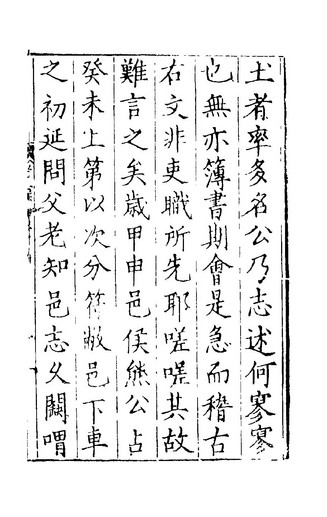 土者率多名公乃志述何寥寥
也無亦簿書期會是急而稽古
右文非吏職所先耶嗟嗟其故
難言之矣歳甲申邑侯熊公占
癸未上第以次分符敝邑下車
之初延問父老知邑志久闕喟